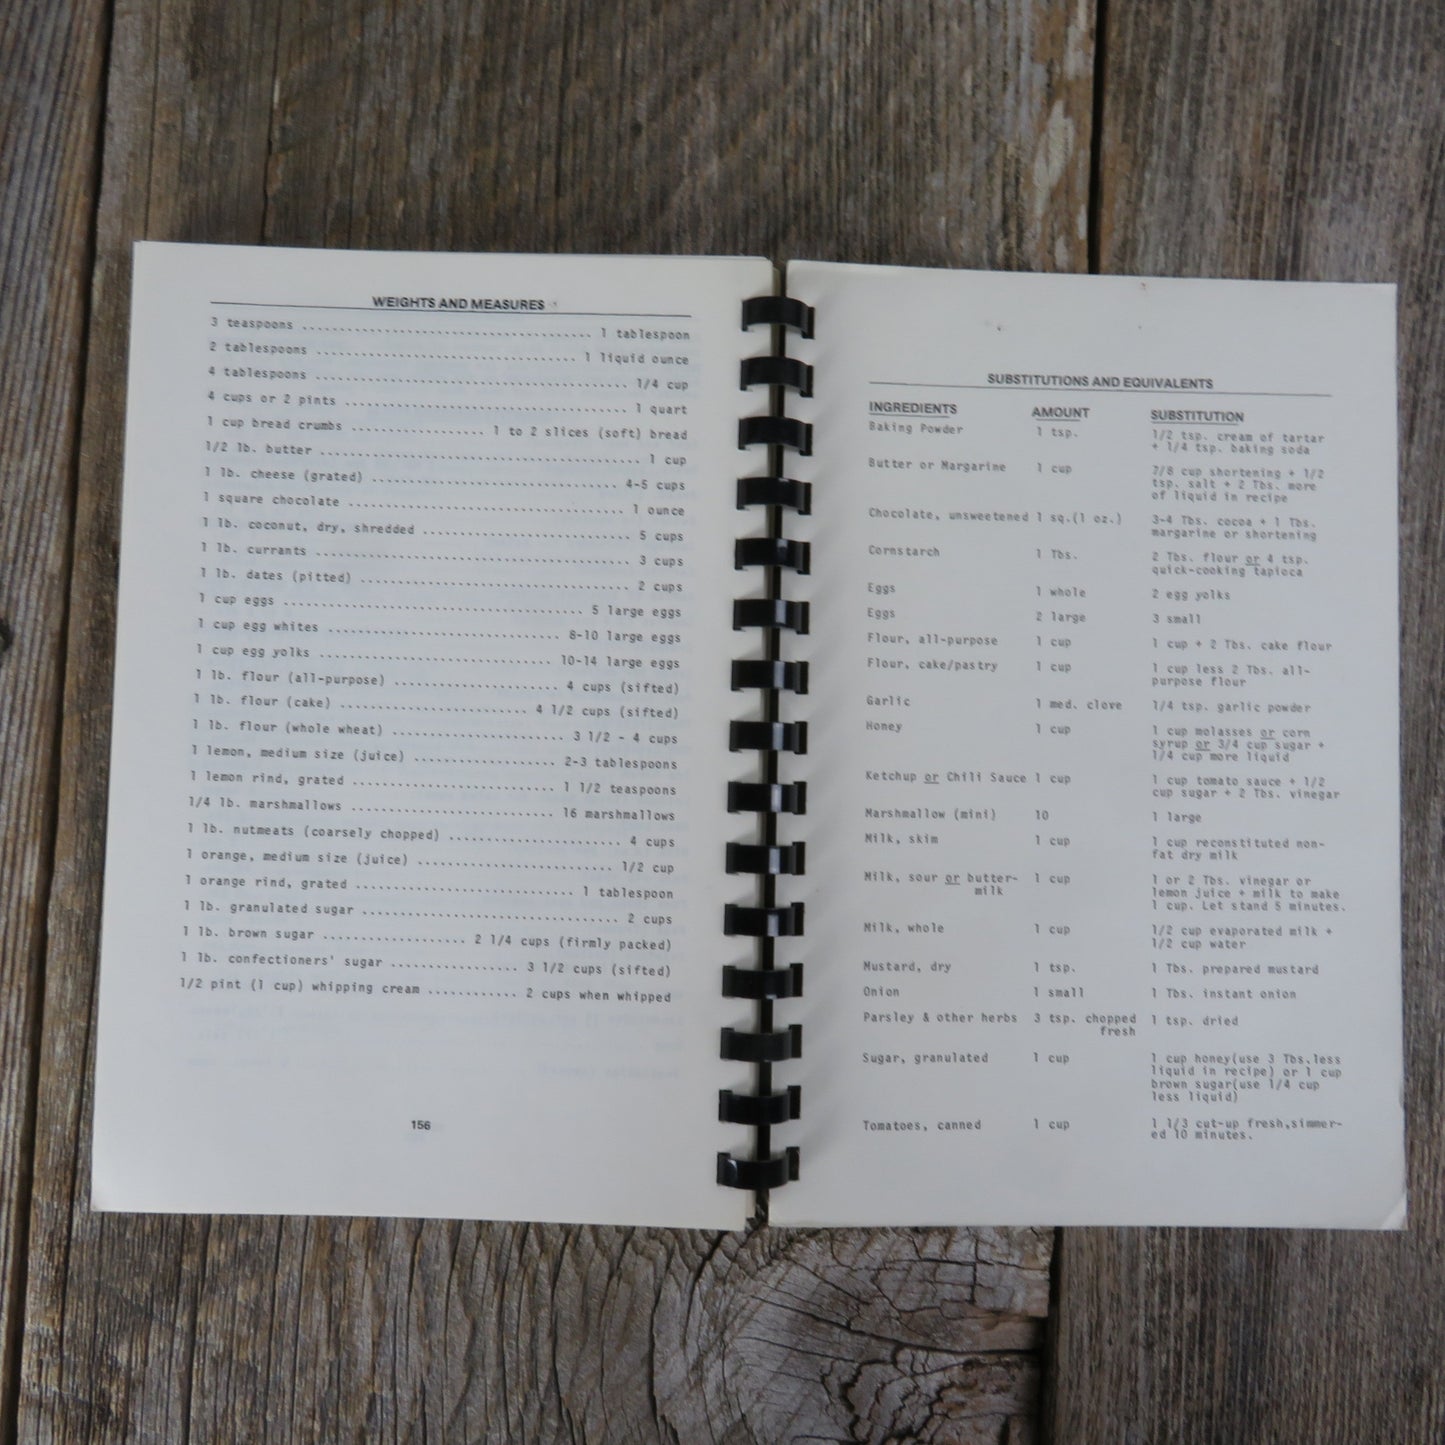 WEIGHTS AND MEASURES
3 teaspoons ........................................ 1 tablespoon
2 tablespoons ................................... 1 liquid ounce
4 tablespoons .......................................... 1/4 cup
4 cups or 2 pints ...................................... 1 quart
1 cup bread crumbs .................. 1 to 2 slices (soft) bread
1/2 lb. butter ........................................... 1 cup
1 lb. cheese (grated) ................................. 4-5 cups
1 square chocolate ..................................... 1 ounce
1 lb. coconut, dry, shredded ............................ 5 cups
1 lb. currants .......................................... 3 cups
1 lb. dates (pitted) .................................... 2 cups
1 cup eggs ........................................ 5 large eggs
1 cup egg whites ............................... 8-10 large eggs
1 cup egg yolks ............................... 10-14 large eggs
1 lb. flour (all-purpose) ...................... 4 cups (sifted)
1 lb. flour (cake) ......................... 4 1/2 cups (sifted)
1 lb. flour (whole wheat) ....................... 3 1/2 - 4 cups
1 lemon, medium size (juice) ................... 2-3 tablespoons
1 lemon rind, grated ........................... 1 1/2 teaspoons
1/4 lb. marshmallows ........................... 16 marshmallows
1 lb. nutmeats (coarsely chopped) ....................... 4 cups
1 orange, medium size (juice) .......................... 1/2 cup
1 orange rind, grated ............................. 1 tablespoon
1 lb. granulated sugar .................................. 2 cups
1 lb. brown sugar ................... 2 1/4 cups (firmly packed)
1 lb. confectioners' sugar ................. 3 1/2 cups (sifted)
1/2 pint (1 cup) whipping cream ............ 2 cups when whipped
156
SUBSTITUTIONS AND EQUIVALENTS
INGREDIENTS AMOUNT SUBSTITUTION
Baking Powder 1 tsp. 1/2 tsp. cream of tartar
+ 1/4 tsp. baking soda
Butter or Margarine 1 cup 7/8 cup shortening + 1/2
tsp. salt + 2 Tbs. more
of liquid in recipe
Chocolate, unsweetened 1 sq.(1 oz.) 3-4 Tbs. cocoa + 1 Tbs.
margarine or shortening
Cornstarch 1 Tbs. 2 Tbs. flour or 4 tsp.
quick-cooking tapioca
Eggs 1 whole 2 egg yolks
Eggs 2 large 3 small
Flour, all-purpose 1 cup 1 cup + 2 Tbs. cake flour
Flour, cake/pastry 1 cup 1 cup less 2 Tbs. all-
purpose flour
Garlic 1 med. clove 1/4 tsp. garlic powder
Honey 1 cup 1 cup molasses or corn
syrup or 3/4 cup sugar +
1/4 cup more liquid
Ketchup or Chili Sauce 1 cup 1 cup tomato sauce + 1/2
cup sugar + 2 Tbs. vinegar
Marshmallow (mini) 10 1 large
Milk, skim 1 cup 1 cup reconstituted non-
fat dry milk
Milk, sour or butter- 1 cup 1 or 2 Tbs. vinegar or
milk lemon juice + milk to make
1 cup. Let stand 5 minutes.
Milk, whole 1 cup 1/2 cup evaporated milk +
1/2 cup water
Mustard, dry 1 tsp. 1 Tbs. prepared mustard
Onion 1 small 1 Tbs. instant onion
Parsley & other herbs 3 tsp. chopped 1 tsp. dried
fresh
Sugar, granulated 1 cup 1 cup honey(use 3 Tbs.less
liquid in recipe) or 1 cup
brown sugar(use 1/4 cup
less liquid)
Tomatoes, canned 1 cup 1 1/3 cut-up fresh,simmer-
ed 10 minutes.